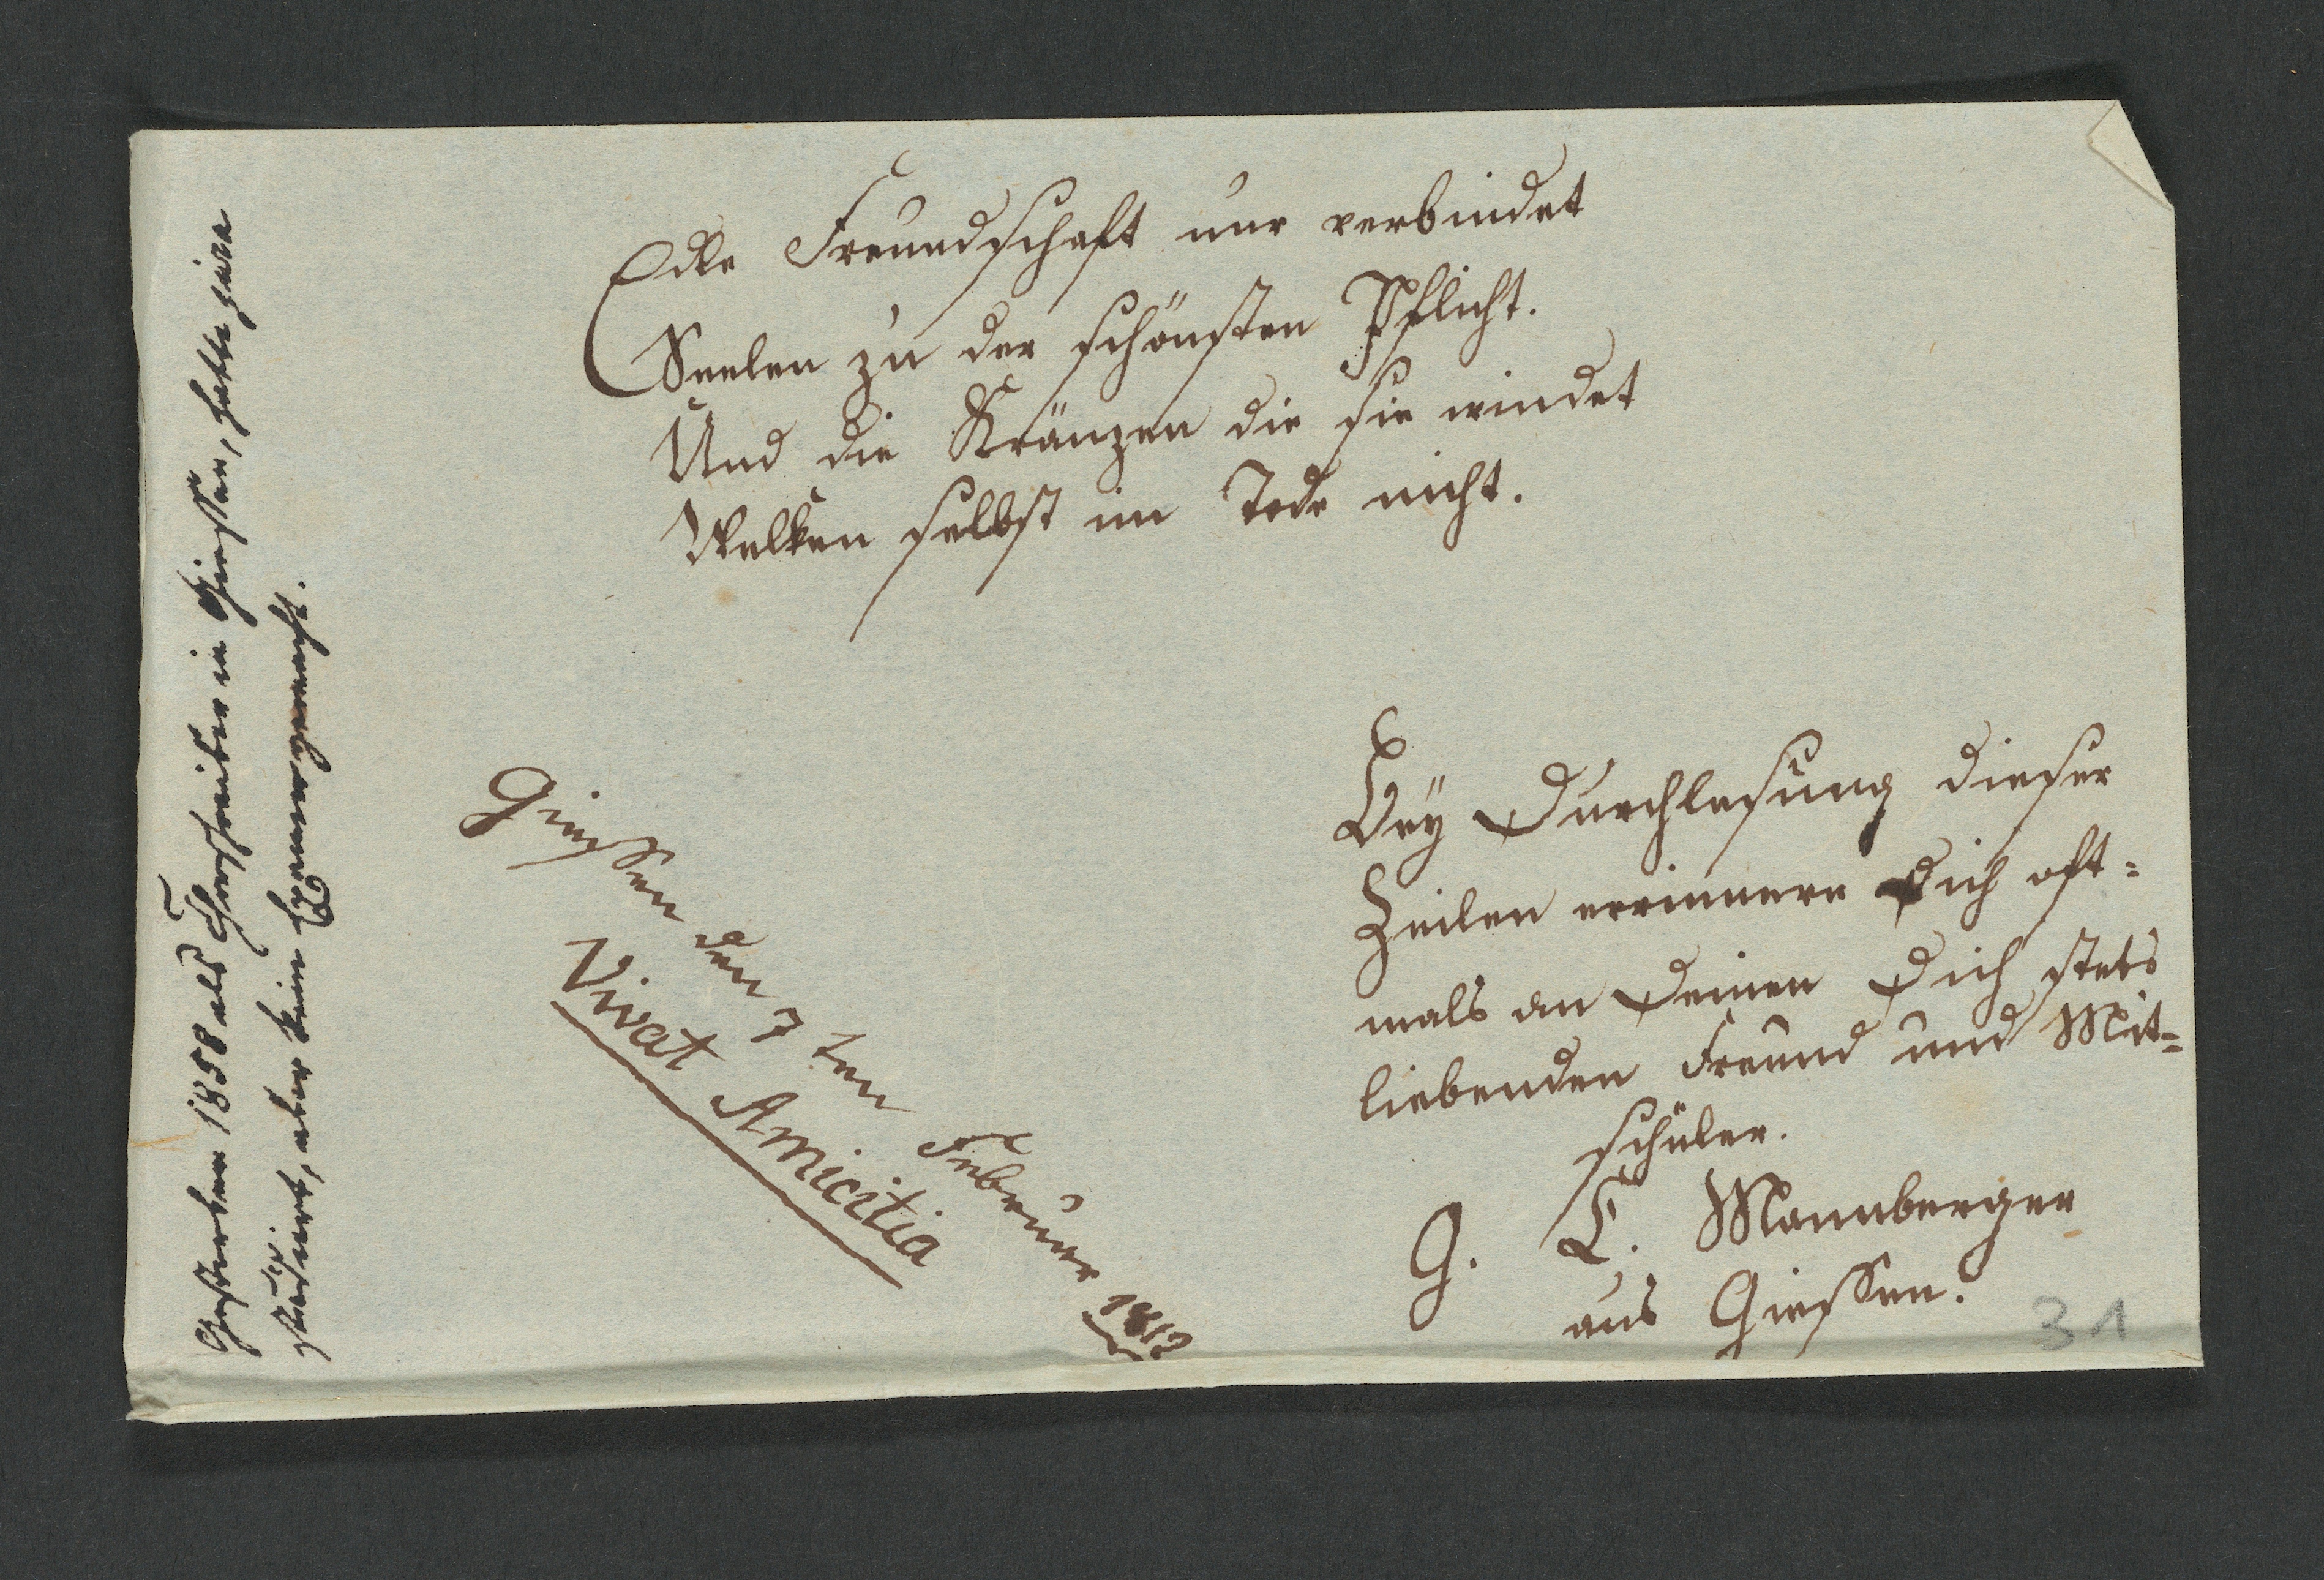 Edle Freundschaft nur verbindet
Seelen zu der schönsten Pflicht.
Und die Kränzen die sie windet
Welken selbst im Tode nicht.
Bey Durchlesung dieser
Zeilen errinnere Dich oft=
mals an Deinen Dich stets
liebenden Freund und Mit=
schüler.
G. L. Mannberger
aus Giessen.
Giessen den 7ten Februar 1812
Vivat Amicitia
Gestorben 1858 als Thorschreiber in Giessen, hatte jura
studiert, aber kein Examen gemacht.
31